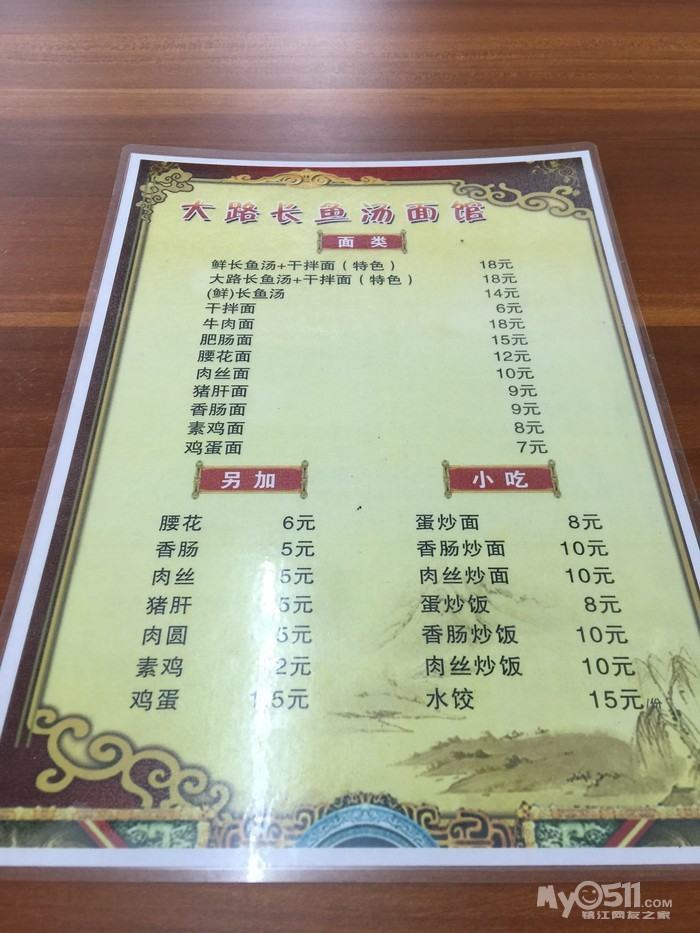 大路长鱼汤面馆
面类
鲜长鱼汤+干拌面（特色） 18元
大路长鱼汤+干拌面（特色） 18元
(鲜)长鱼汤 14元
干拌面 6元
牛肉面 18元
肥肠面 15元
腰花面 12元
肉丝面 10元
猪肝面 9元
香肠面 9元
素鸡面 8元
鸡蛋面 7元
另加
腰花 6元
香肠 5元
肉丝 5元
猪肝 5元
肉圆 5元
素鸡 2元
鸡蛋 1.5元
小吃
蛋炒面 8元
香肠炒面 10元
肉丝炒面 10元
蛋炒饭 8元
香肠炒饭 10元
肉丝炒饭 10元
水饺 15元/份
My0511.COM
镇江网友之家